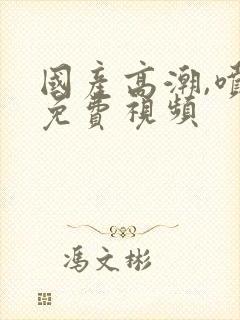 國産高潮,噴
免費視頻
馮文彬